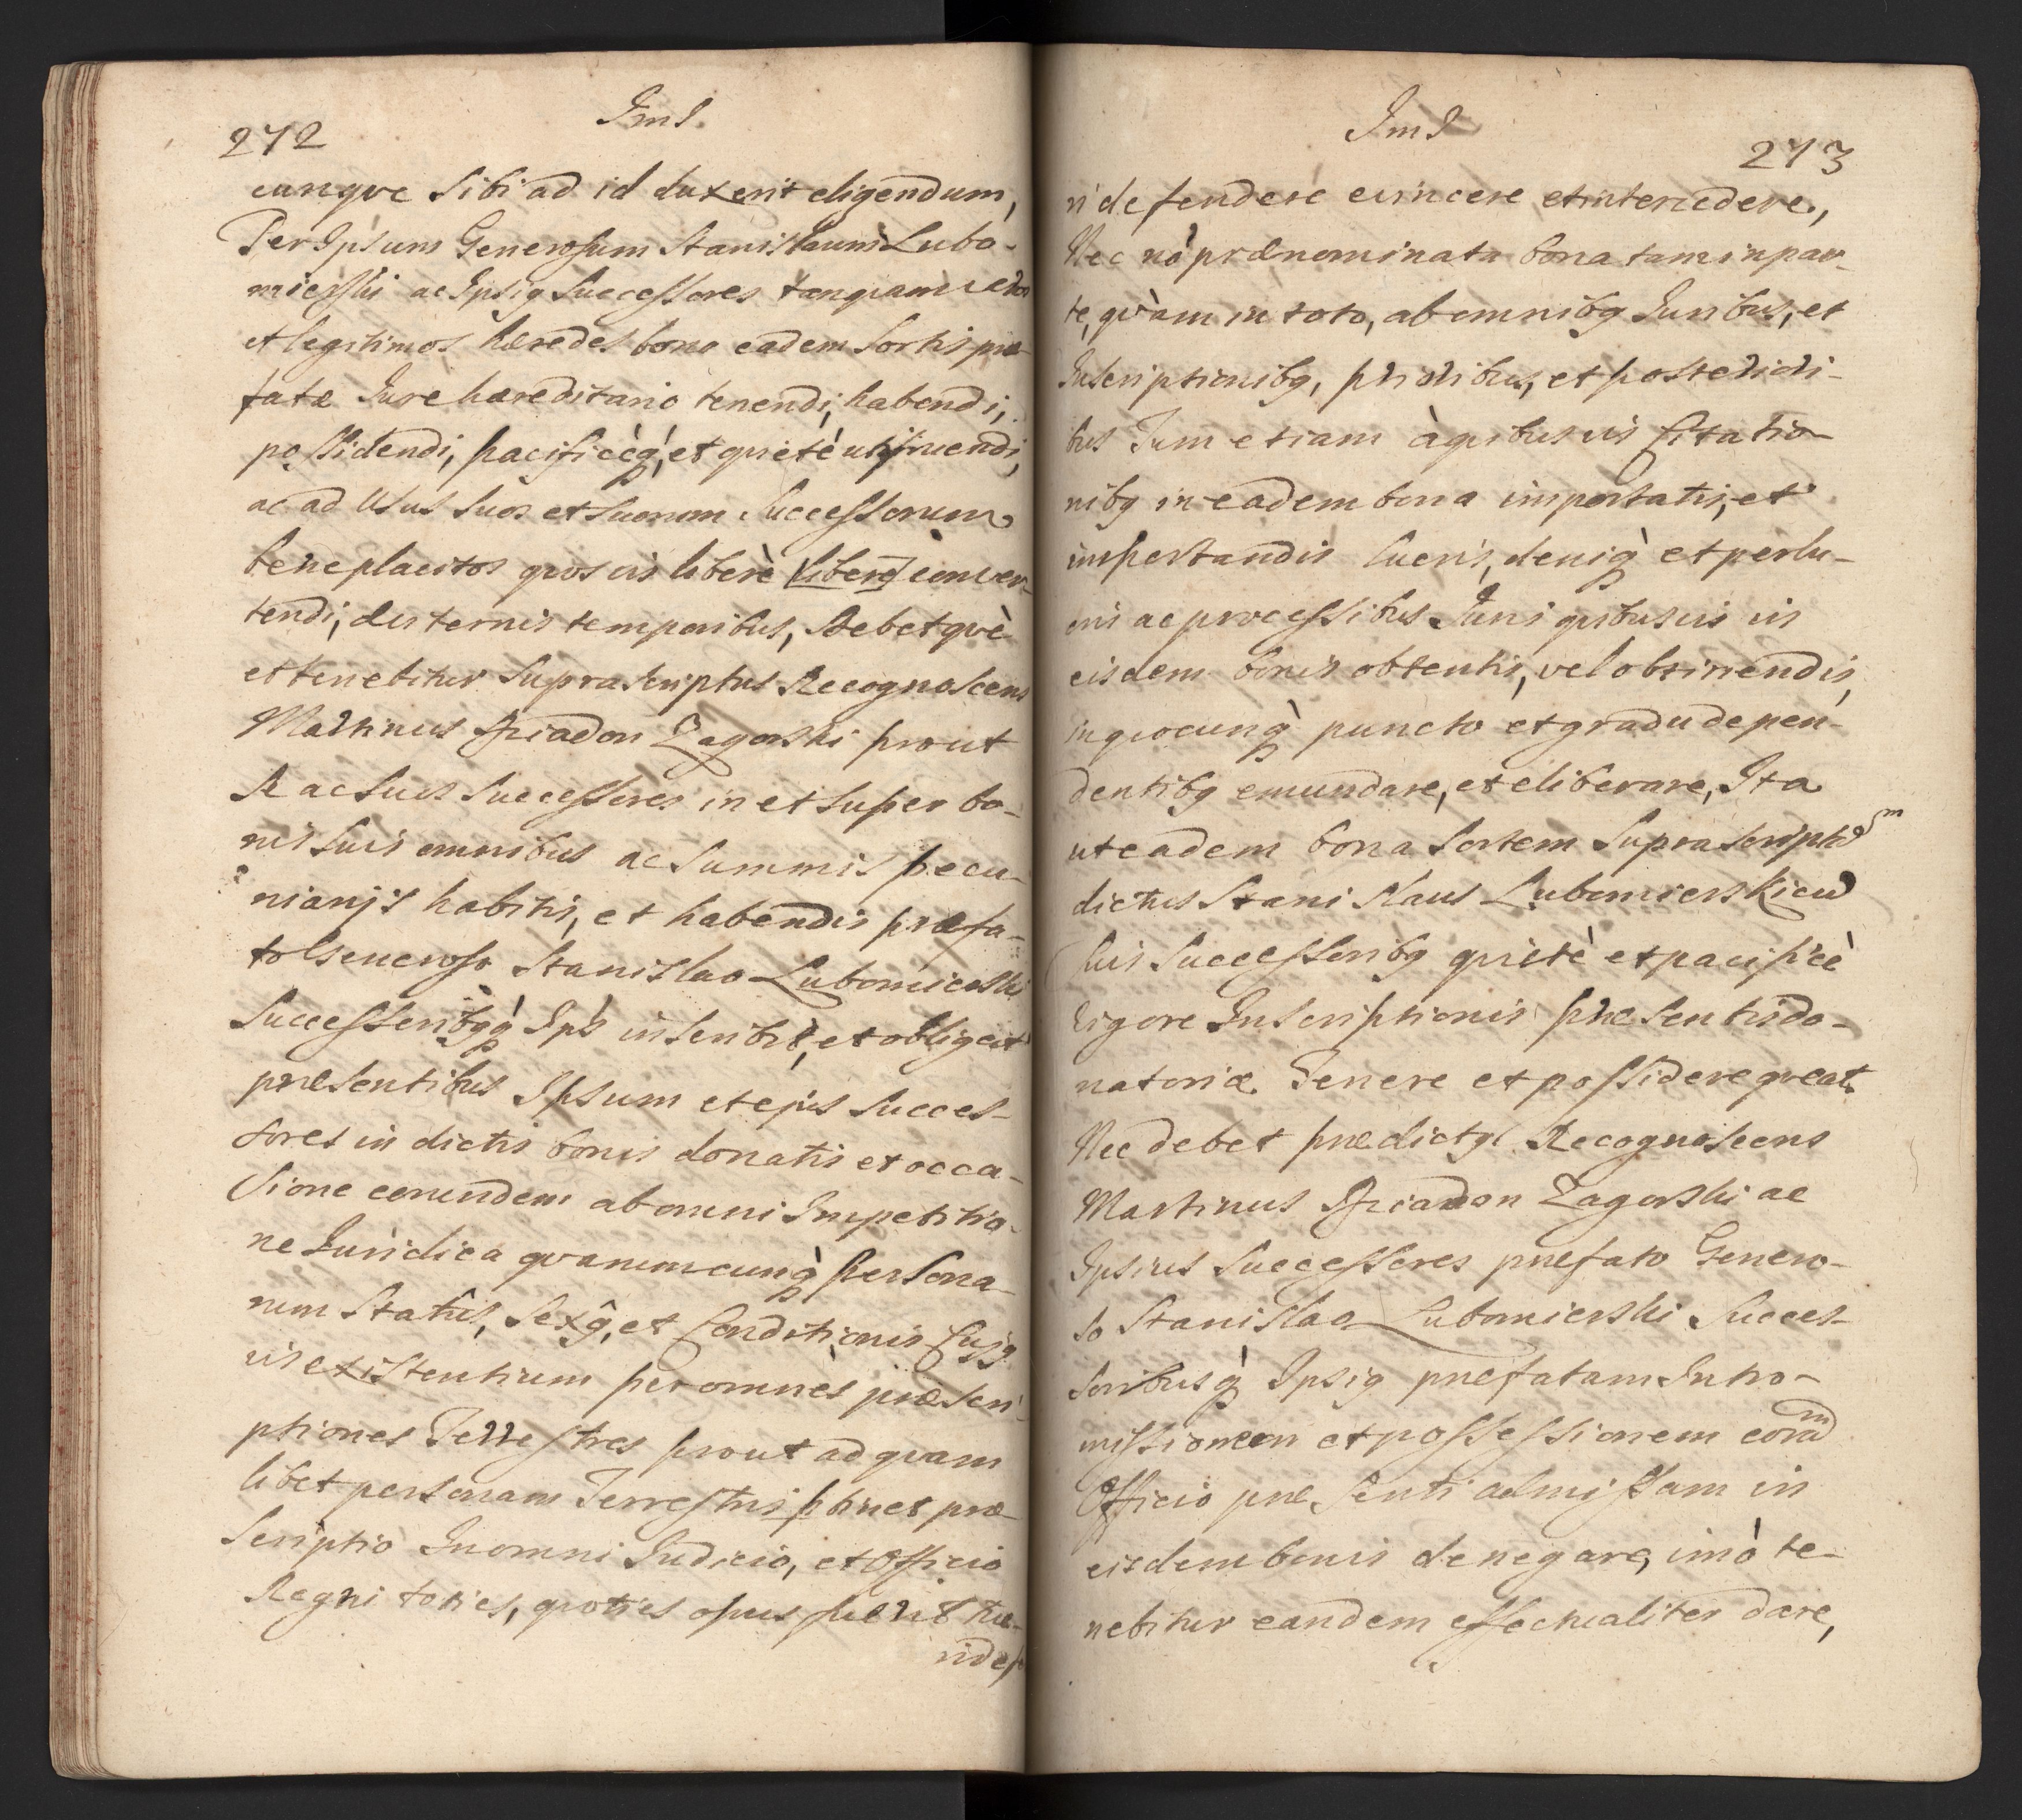 272
Jms.
cunqve Sibi ad id duxerit eligendum,
Per Ipsum Generosum Stanislaum Lubo-
mierski ac Ipsiq Successores tanqvam veros
et legitimos hæredes bona eadem Sortis præ-
fatæ Jure hæreditario tenendi, habendi,
possidendi, pacificèq, et qvietè utifruendi,
ac ad Usus Suos et Suorum Successorum
beneplacitos qvosvis liberè [liberè] conver-
tendi, disternis temporibus, Debetqvè
et tenebitur Suprascriptus Recognoscens
Martinus Zagorski prout
Se ac Suos Successores in et Super bo-
nis Suis omnibus ac Summis pecu-
niarijs habitis, et habendis præfa-
to Generoso Stanislao Lubomierski
Successoribqq Ips inscribit, et obligat
præsentibus Ipsum et ejus Succes-
sores in dictis bonis donatis et occa-
sione eorundem ab omni Impetitio-
ne Juridica qvarumcunq Persona-
rum Statûs, Sexq, et Conditionis Cujsq
vis existentium per omnes præscri-
ptiones Terrestres prout ad qvam
libet personam Terrestris ptinet præ
scriptio In omni Judicio, et Officio
Regni toties, qvoties opus fuerit tue-
ridef
Jms
273
ri defendere evincere et intercedere,
Nec nò prænominata bona tam in par-
te, qvàm in toto, ab omnibq Juribus, et
Inscriptionibq, pridibus, et posteridi-
bus Tum etiam à qvibusvis Citatio-
nibq in eadem bona importatis, et
importandis lucris, deniq et perlu-
cris ac processibus Juris qvibusvis in
eisdem bonis obtentis, vel obtinendis,
in qvocunq puncto et gradu depen-
dentibq emundare, et eliberare, Ita
ut eadem bona Sortem Suprascriptam
dictus Stanislaus Lubomierski cu
suis Successoribq qvietè et pacificè
vigore Inscriptionis præsentis do-
natoriæ Tenere et possidere qveat.
Nec debet prædictq Recognoscens
Martinus Zagorski ac
Ipsius Successores præfato Genero-
so Stanislao Lubomierski Succes-
soribusq Ipsiq præfatam Intro-
missionem et possessionem coram
Officio præsenti admissam in
eisdem bonis denegare, imò te-
nebitur eandem effectualiter dare,